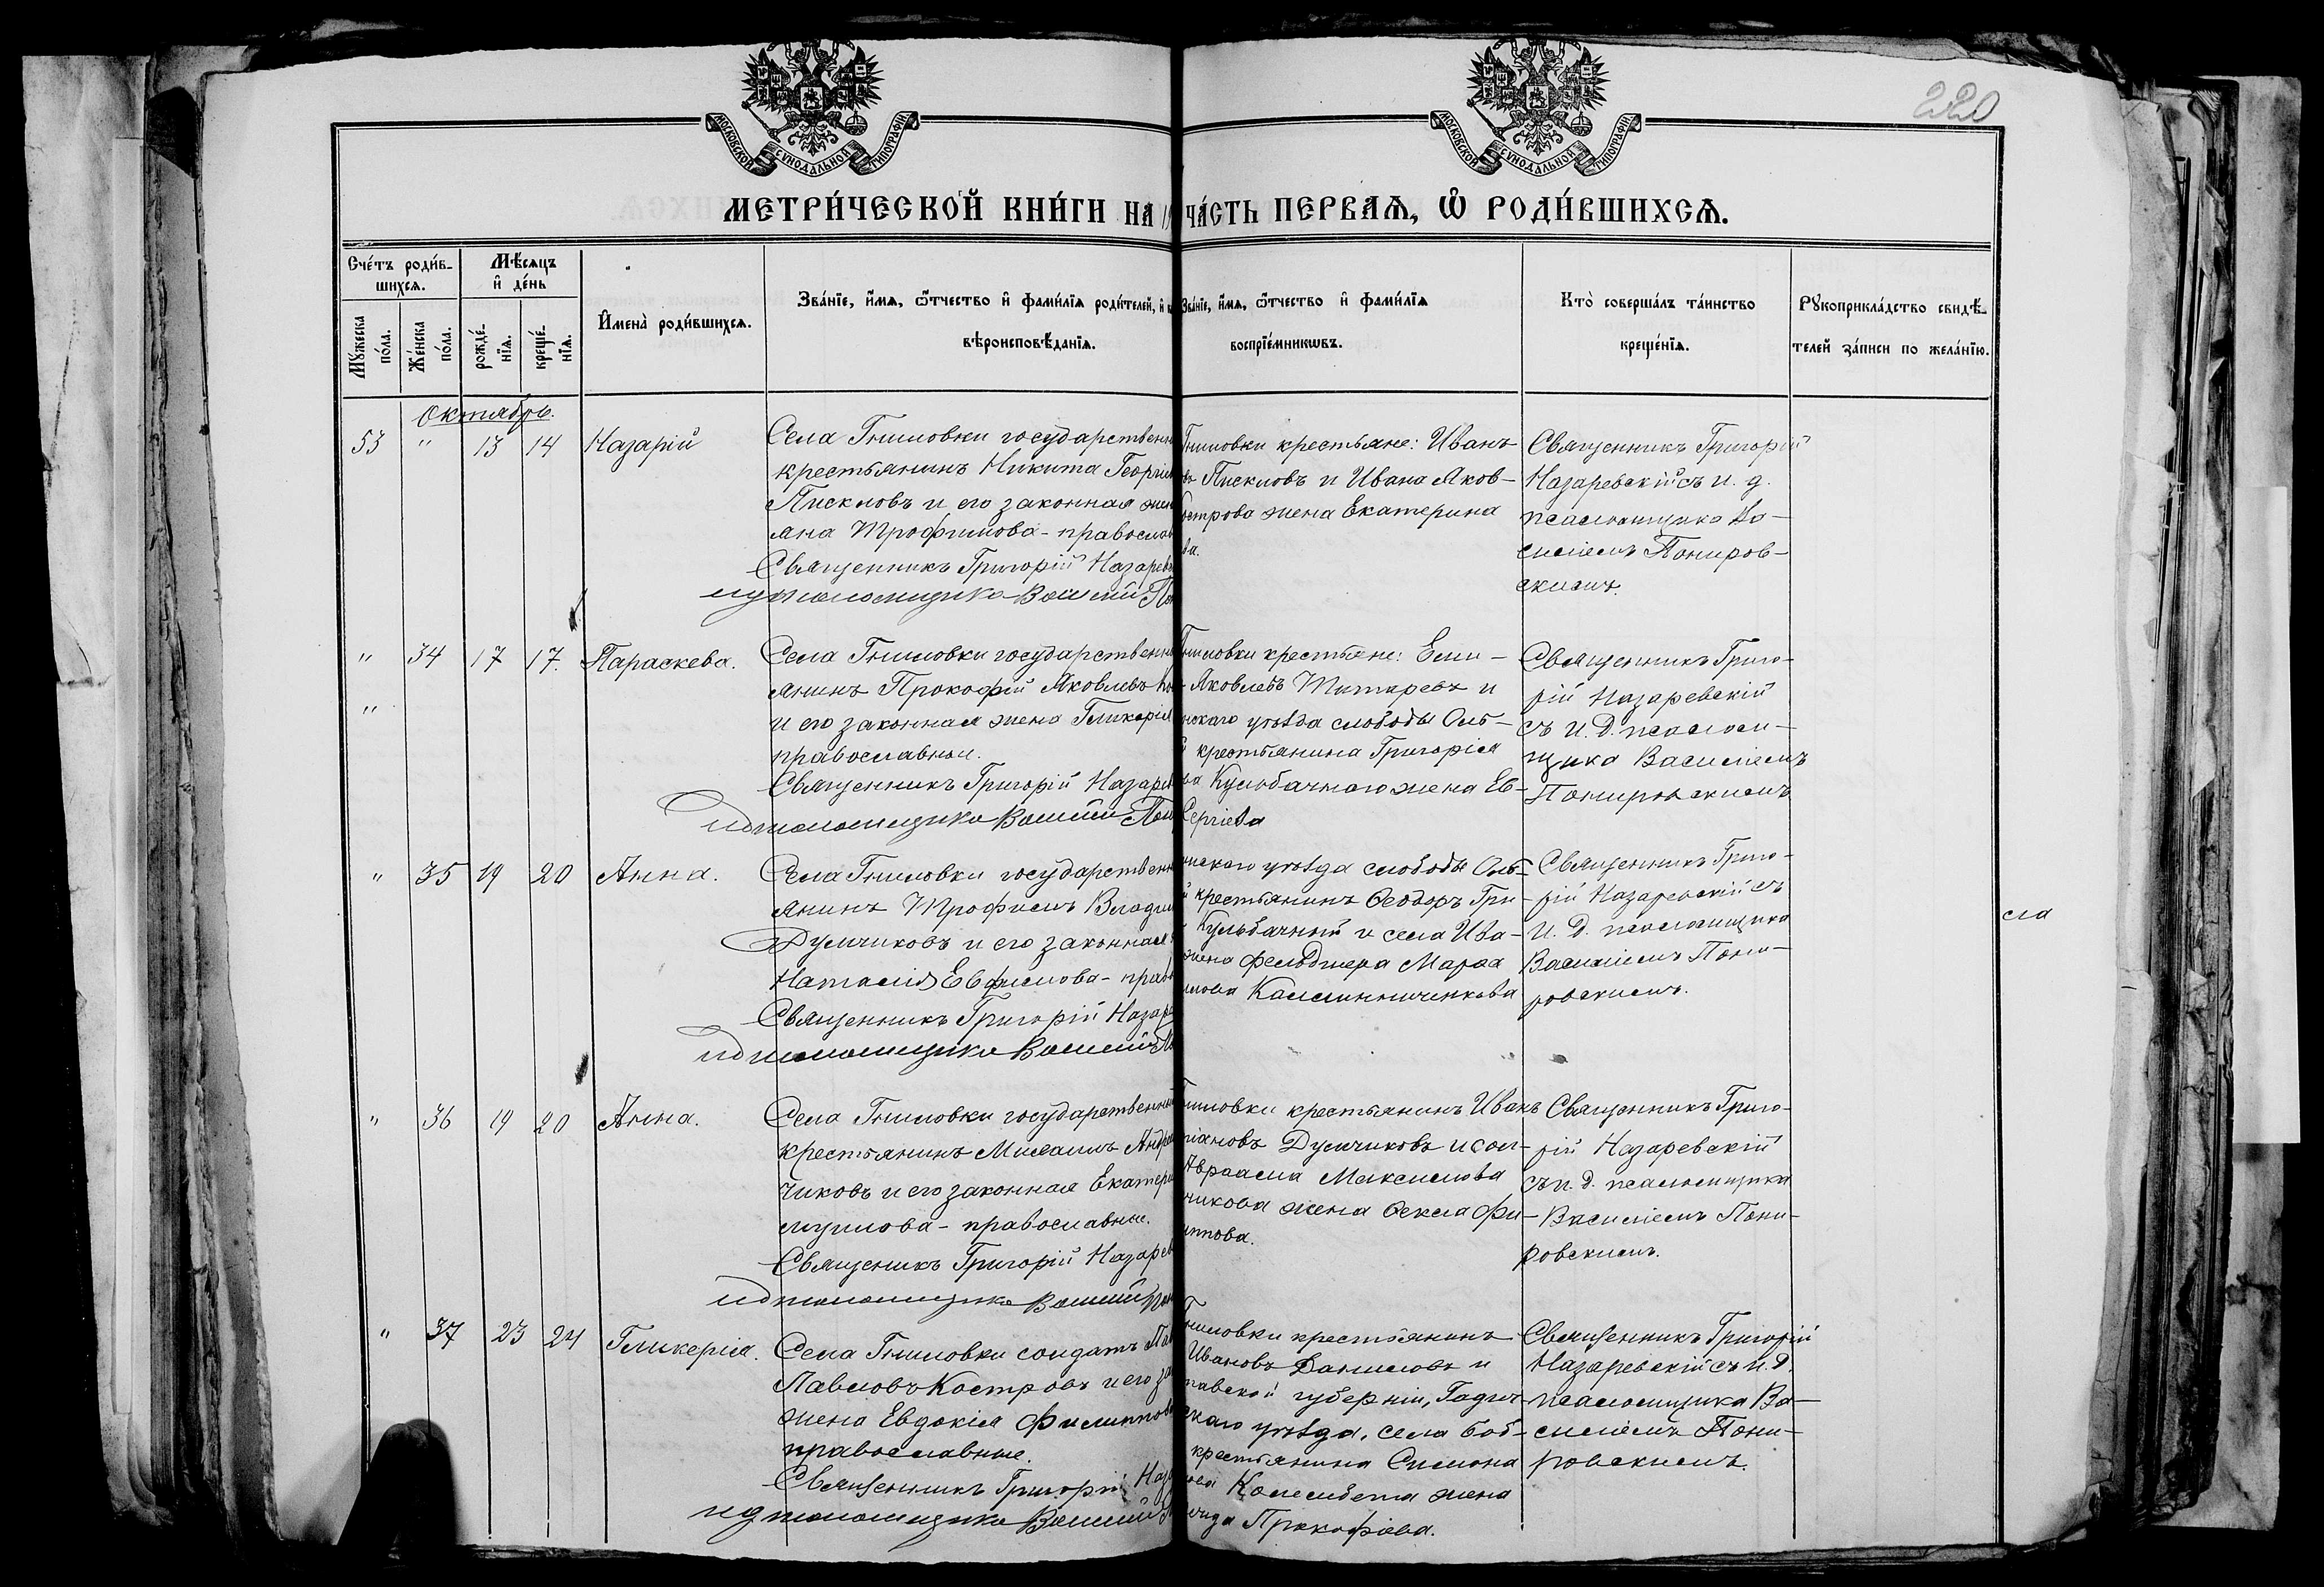 220
МОСКОВСКОЙ СѴНОДАЛЬНОЙ ТИПОГРАФІИ
МОСКОВСКОЙ СѴНОДАЛЬНОЙ ТИПОГРАФІИ
МЕТРИ́ЧЕСКОЙ КНИ́ГИ НА 19
ЧА́СТЬ ПЕРВАѦ, Ѿ РОДИ́ВШИХСѦ.
Сче́тъ роди́в-
шихсѧ.
Мꙋ́жеска по́ла.
Же́нска по́ла.
Мѣ́сяцъ
и҆ де́нь
рожде́-
нїѧ.
креще́-
нїѧ.
И҆мена̀ роди́вшихсѧ.
Зва́нїе, и҆́мѧ, ѻ҆́тчество и҆ фами́лїѧ роди́телей, и҆
вѣроисповѣ́данїѧ.
Зва́нїе, и҆́мѧ, ѻ҆́тчество и҆ фами́лїѧ
воспрїе́мникѡвъ.
Кто̀ соверша́лъ та́инство
креще́нїѧ.
Рꙋкоприкла́дство свидѣ́-
телей за́писи по жела́нїю.
Октябрь.
53 " 13 14 Назарій
Села Гниловки государственн
крестьянинъ Никита Георгіев
Пискловъ и его законная жен
яна Трофимова - православ
Священникъ Григорій Назарев
ид псаломщика Василій Пон
Гниловки крестьяне: Иванъ
въ Пискловъ и Ивана Яков-
острова жена Екатерина
ва.
Священникъ Григорій
Назаревскій съ и. д.
псаломщика Ва-
силіемъ Пониров-
скимъ.
" 34 17 17. Параскева.
"
Села Гниловки государственн
янинъ Прокофій Яковлевъ
и его законная жена Гликерія
православные.
Священникъ Григорій Назарев
ид псаломщика Василій Пон
Гниловки крестьяне: Ели-
Яковлевъ Титаревъ и
нскаго уѣзда слободы Оль-
й крестьянина Григорія
ва Кульбачнаго жена Ев-
Сергіева
Священникъ Григо-
рій Назаревскій
съ И. Д. псалом-
щика Василіемъ
Понировскимъ
" 35 19 20 Анна.
Села Гниловки государственн
янинъ Трофимъ Влади
Думчиковъ и его законная
Наталія Евфимова - прав
Священникъ Григорій Назаре
ид псаломщика Василій По
инскаго уѣзда слободы Оль-
й крестьянинъ Ѳеодоръ Гри-
Кульбачный и села Ива-
жена фельдшера Марѳа
лова Калинниченкова
Священникъ Григо-
рій Назаревскій съ
И. Д. псаломщика
Василіемъ Пони-
ровскимъ.
сла
" 36 19 20 Анна.
Села Гниловки государственный
крестьянинъ Михаилъ Андре
чиковъ и его законная Екатери
муилова - православные.
Священикъ Григорій Назарев
ид псаломщика Василій Пон
Гниловки крестьянинъ Иванъ
ріановъ Думчиковъ и сол-
Авраама Максимова
чикова жена Ѳекла Фи-
иппова.
Священникъ Григо-
рій Назаревскій
съ и. д. псаломщика
Василіемъ Пони-
ровскимъ.
" 37 23 24 Гликерія.
Села Гниловки солдатъ Па
Павловъ Костровъ и его за
жена Евдокія Филиппов
православные.
Священникъ Григорій Наза
ид псаломщика Василій П
Гниловки крестьянинъ
Ивановъ Даниловъ и
тавской губерніи, Гадяч-
скаго уѣзда, села Боб-
крестьянина Симона
ова Колембета жена
ида Прокофіева.
Священникъ Григорій
Назаревскій съ и. д.
псаломщика Ва-
силіемъ Пони-
ровскимъ.